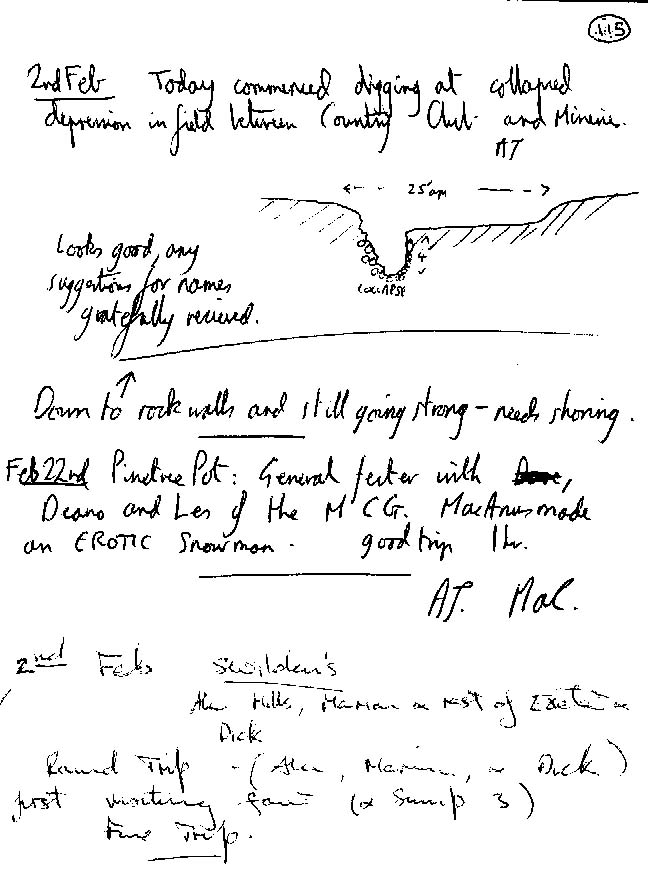 115
2nd Feb Today commenced digging at collapsed
depression in field between Country Club and Mineries.
AT
25' apx
4'
COLLAPSE
Looks good, any
suggestions for names
gratefully recieved.
Down to rock walls and still going strong - needs shoring.
Feb 22nd Pinetree Pot: General fester with
Deano and Les of the MCG. MacAnus made
an EROTIC Snowman. good trip 1hr.
AT. Mac.
2nd Feb Swildon's
Alan Mills, Marian & rest of Exeter &
Dick
Round Trip - (Alan, Marian, & Dick)
post (& Sump 3)
Fine Trip.